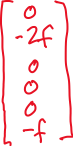 0
-2f
0
0
0
-f